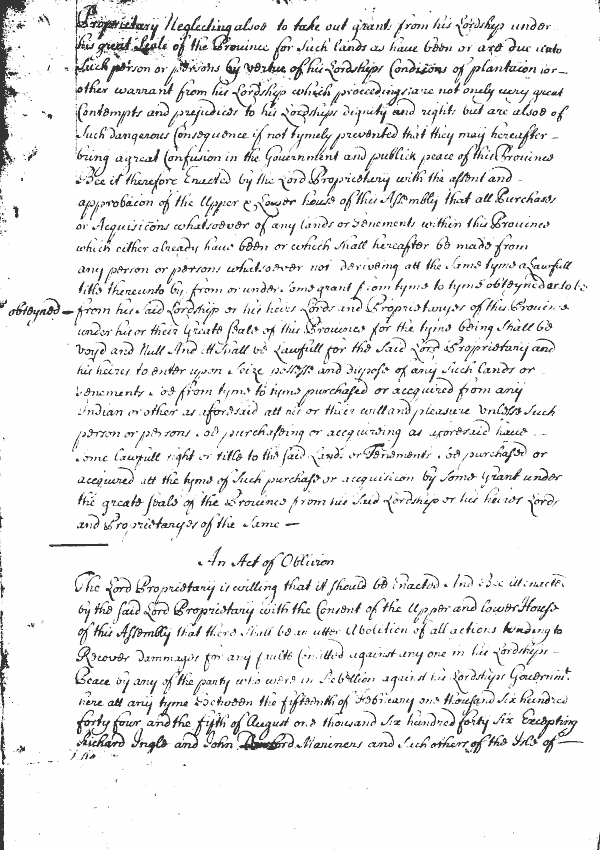 Proprietary Neglecting alsoe to take out grant from his Lordship under
his great Seale of the Province for Such lands as have been or are due unto
Such person or persons by vertue of his Lordships Conditions of plantacon or
other warrant from his Lordship which proceedings are not only very great
Contempts and prejudices to his Lordships dignity and rights but are alsoe of
Such dangerous Consequence if not tymely prevented that they may hereafter
bring a great Confusion in the Government and publick peace of this Province
Bee it therefore Enacted by the Lord Proprietary with the assent and
approbacon of the Upper & Lower house of this Assembly that all Purchases
or Acquisicons whatsoever of any lands or Tenements within this Province
which either already have been or which Shall hereafter be made from
any person or persons whatsoever not deriveing att the Same tyme a Lawfull
title thereunto by from or under Some grant from tyme to tyme obteyned or to be
obteyned – from his Said Lordship or his heirs Lords and Proprietaryes of this Province
under his or their Greate Seale of this Province for the tyme being Shall be
voyd and Null And itt Shall be Lawfull for the Said Lord Proprietary and
his heires to enter upon Seize possesse and dispose of any Such lands or
Tenements Soe from tyme to tyme purchased or acquired from any
Indian or other as aforesaid att his or their will and pleasure Unlesse Such
person or persons Soe purchaseing or acquireing as aforesaid have
Some lawfull right or title to the said Lands or Tenements Soe purchased or
acquired att the tyme of Such purchase or acquisicon by Some Grant under
the greate Seale of the Province from his Said Lordship or his heires Lords
and Proprietaryes of the Same –
An Act of Oblivion
The Lord Proprietary is willing that it should be Enacted And Bee itt enacted
by the said Lord Proprietary with the Consent of the Upper and lower House
of this Assembly that there Shall be an utter Abolition of all actions tending to
Recover dammages for any Comitted against any one in his Lordships
Peace by any of the party who were in Rebellion against his Lordships Governmt.
here att any tyme Between the fifteenth of February one thousand Six hundred
forty four and the fifth of August one thousand Six hundred forty Six Excepting
Richard Ingle and John Mariners and Such others of the Isle of –